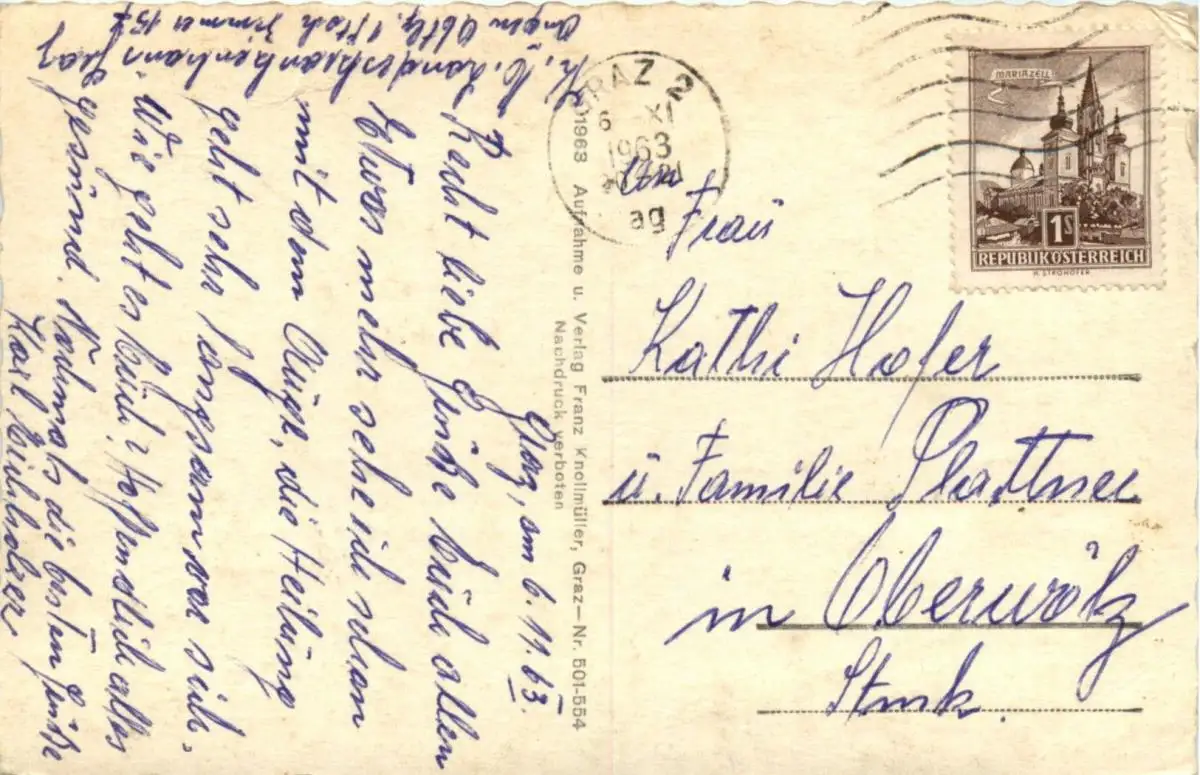 Graz, am 6. 11. 63.
Recht liebe Grüße Euch allen
Etwas mehr sehe ich schon
mit dem Auge, die Heilung
geht sehr langsam vor sich.
Wie geht es Euch? Hoffendlich alles
gesund. Nochmals die besten Grüße
Karl
Landeskrankenhaus Graz
Augen Abtlg. 1 Stock Zimmer 157
©1963 Aufnahme u. Verlag Franz Knollmüller, Graz—Nr. 501-554
Nachdruck verboten
GRAZ 2
6 XI
1963
ag
MARIAZELL
1S
REPUBLIK ÖSTERREICH
An
Frau
Kathi Hofer
u. Familie Plattner
in Oberwölz
Stmk.